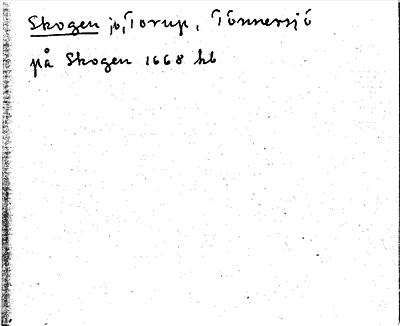 Skogen jb, Torup, Tönnersjö
på Skogen 1668 hb